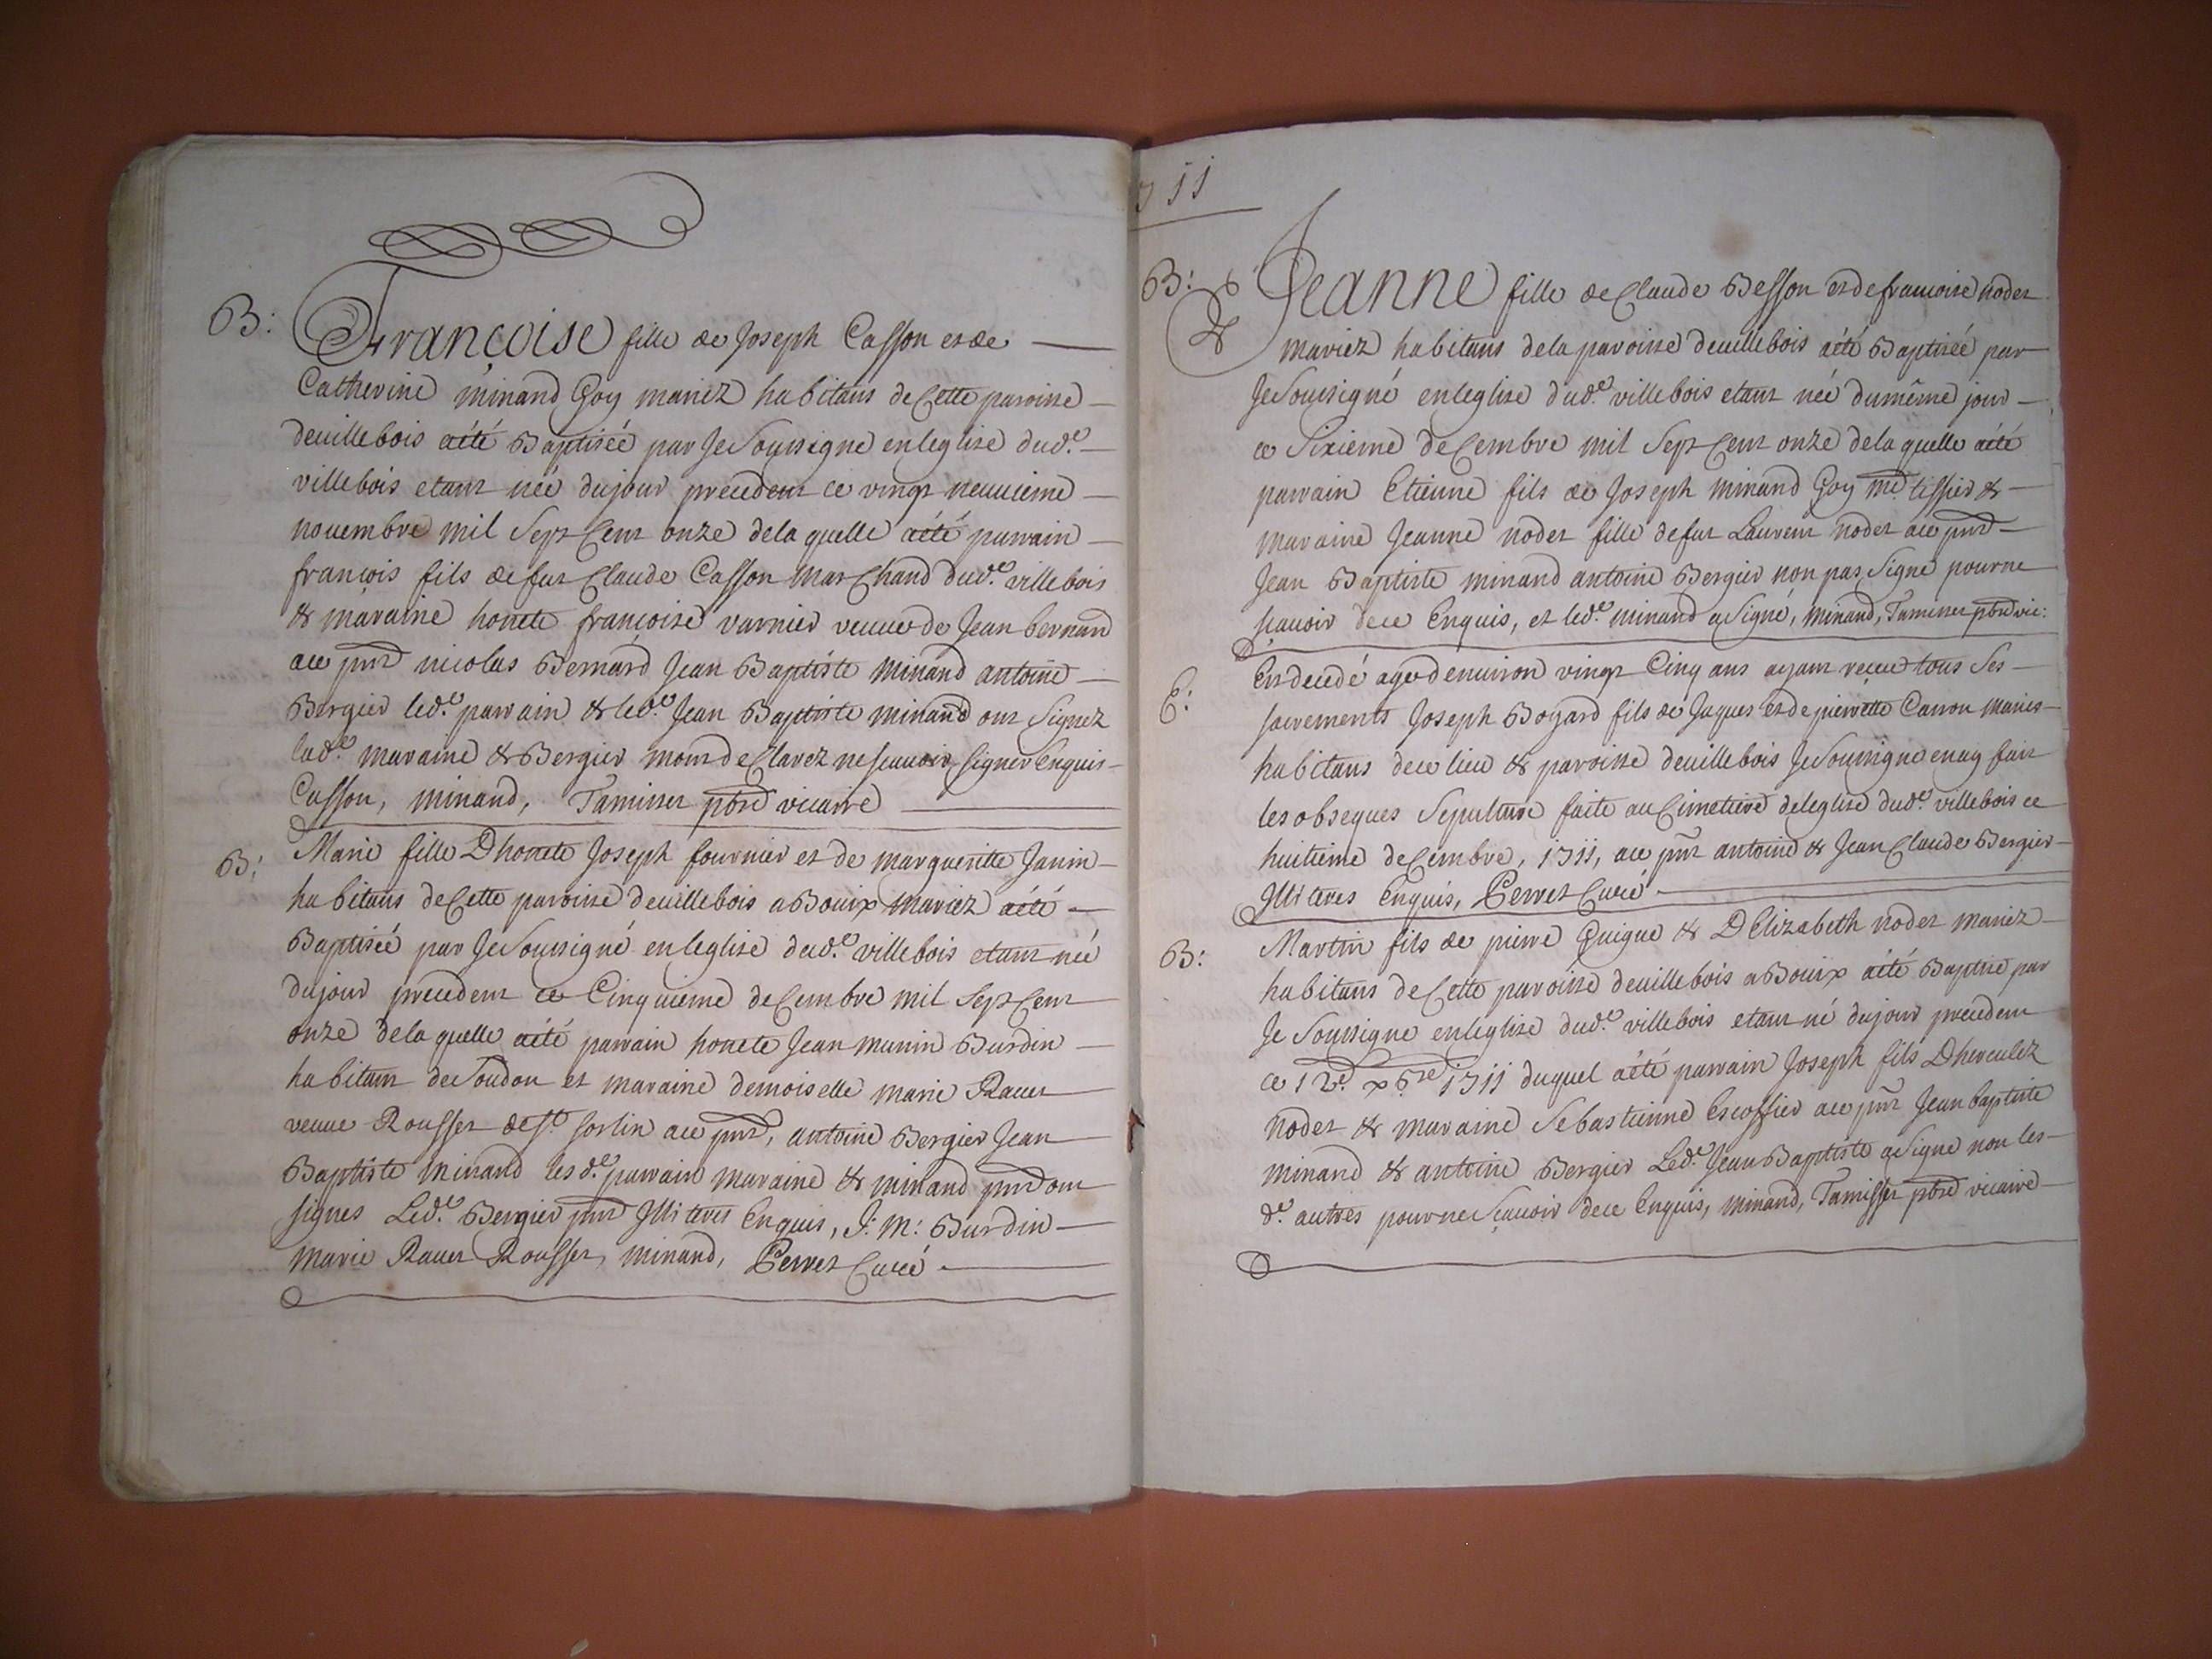 B: Françoise fille de Joseph Casson et de
Catherine minand Goy mariez habitans de Cette paroisse
deuillebois aété Baptiséé par Je Soussigne enleglise dud.e
villebois etant néé dujour precedent ce vingt neuuieme
nouembre mil Sept Cent onze dela quelle aété parrain
françois fils de fut Claude Casson marChand dud.e villebois
& maraine honete françoise varnier veuue de Jean bernard
ace pnt nicolas Bernard Jean Baptiste minand antoine
Bergier led.e parrain & led.e Jean Baptiste minand ont Signez
lad.e maraine & Bergier mont deClarez nescauoir Signer Enquis
Casson, minand, Tamisset pbre vicaire
B: Marie fille Dhonete Joseph fournier et de margueritte Janin
habitans de Cette paroisse deuillebois a Bouix mariez aété
Baptiséé par Je Soussigné enleglise dud.e villebois etant néé
dujour precedent ce Cinquieme deCembre mil Sept Cent
onze dela quelle aété parrain honete Jean munin Burdin
habitant de Soudon et maraine demoiselle marie Rauet
veuue Rousset de St sorlin ace pnt, antoine Bergier Jean
Baptiste minand lesd.e parrain maraine & minand pnt ont
signes Led.e Bergier pnt Illiteres Enquis, J: M: Burdin
marie Rauet Rousset, minand, Perret Curé
711
B: Jeanne fille de Claude Besson et de francoise nodet
mariez habitans dela paroisse deuillebois aété Baptiséé par
Je Soussigné enleglise dud.e villebois etant néé dumême jour
ce Sixieme deCembre mil Sept Cent onze dela quelle aété
parrain Etienne fils de Joseph minand Goy me tissier &
maraine Jeanne nodet fille de fut Laurent nodet ace pnt
Jean Baptiste minand antoine Bergier non pas Signé pourne
sçauoir dece Enquis, et led.e minand a Signé, minand, Tamisset pbre vic:
E: Est decedé agé denuiron vingt Cinq ans ayant reçeu tous Ses
sacrements Joseph Bozard fils de Jaques et de pierrette Carron maries
habitans dece lieu & paroisse deuillebois Je Soussigne enay fait
les obseques Sepulture faite au Cimetiere deleglise dud.e villebois ce
huitieme deCembre, 1711, ace pnt antoine & Jean Claude Bergier
Illiteres Enquis, Perret Curé
B: Martin fils de pierre Quigue & DElizabeth nodet mariez
habitans de Cette paroisse deuillebois a Bouix aété Baptisé par
Je Soussigne enleglise dud.e villebois etant né dujour precedent
ce 12.e xbre 1711 duquel aété parrain Joseph fils Dherculez
nodet & maraine Sebastienne Escoffier ace pnt Jean baptiste
minand & antoine Bergier Led.e Jean Baptiste a Signe non les
d.e autres pourne Sçauoir dece Enquis, minand, Tamisset pbre vicaire